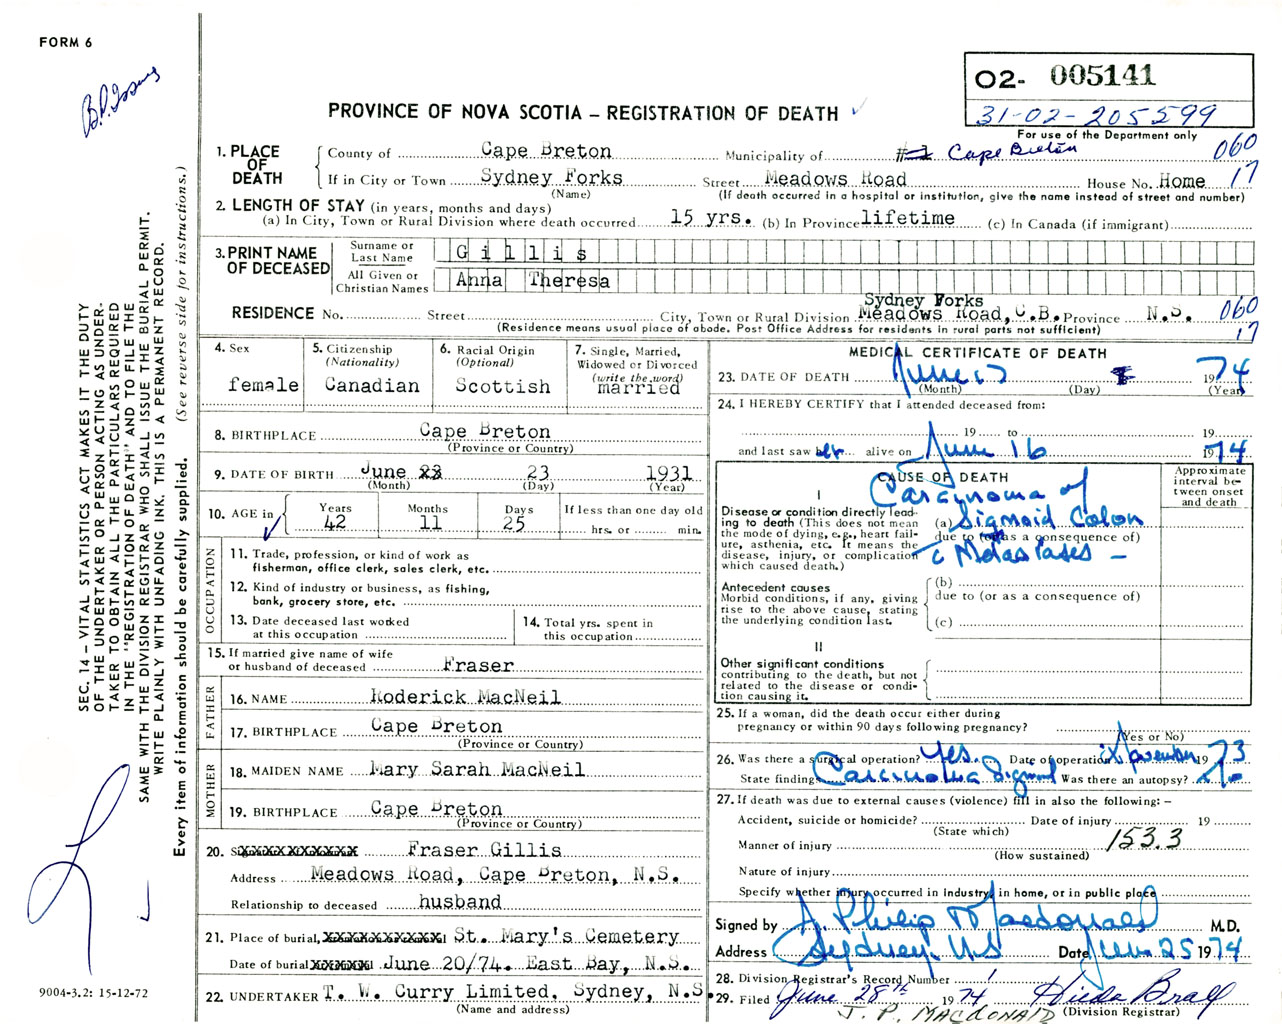 FORM 6
O2- 005141
31-02-205599
For use of the Department only
PROVINCE OF NOVA SCOTIA – REGISTRATION OF DEATH
1. PLACE OF DEATH
County of Cape Breton Municipality of #1 Cape Breton 060
If in City or Town Sydney Forks Street Meadows Road House No. Home 17
(Name) (If death occurred in a hospital or institution, give the name instead of street and number)
2. LENGTH OF STAY (in years, months and days)
(a) In City, Town or Rural Division where death occurred 15 yrs. (b) In Province lifetime (c) In Canada (if immigrant)
3. PRINT NAME OF DECEASED
Surname or Last Name Gillis
All Given or Christian Names Anna Theresa
Sydney Forks
RESIDENCE No. Street City, Town or Rural Division Meadows Road, C.B. Province N.S. 060
(Residence means usual place of abode. Post Office Address for residents in rural parts not sufficient) 17
4. Sex female
5. Citizenship (Nationality) Canadian
6. Racial Origin (Optional) Scottish
7. Single, Married, Widowed or Divorced (write the word) married
8. BIRTHPLACE Cape Breton
(Province or Country)
9. DATE OF BIRTH June 23 1931
(Month) (Day) (Year)
10. AGE in Years 42 Months 11 Days 25 If less than one day old hrs. or min.
OCCUPATION
11. Trade, profession, or kind of work as fisherman, office clerk, sales clerk, etc.
12. Kind of industry or business, as fishing, bank, grocery store, etc.
13. Date deceased last worked at this occupation
14. Total yrs. spent in this occupation
15. If married give name of wife or husband of deceased Fraser
FATHER
16. NAME Roderick MacNeil
17. BIRTHPLACE Cape Breton
(Province or Country)
MOTHER
18. MAIDEN NAME Mary Sarah MacNeil
19. BIRTHPLACE Cape Breton
(Province or Country)
20. Fraser Gillis
Address Meadows Road, Cape Breton, N.S.
Relationship to deceased husband
21. Place of burial, St. Mary's Cemetery
Date of burial June 20/74. East Bay, N.S.
22. UNDERTAKER T. W. Curry Limited, Sydney, N.S.
(Name and address)
MEDICAL CERTIFICATE OF DEATH
23. DATE OF DEATH June 17 1974
(Month) (Day) (Year)
24. I HEREBY CERTIFY that I attended deceased from:
19 to 19
and last saw her alive on June 16 1974
CAUSE OF DEATH
Approximate interval between onset and death
I
Disease or condition directly leading to death (This does not mean the mode of dying, e.g., heart failure, asthenia, etc. It means the disease, injury, or complication which caused death.)
Carcinoma of
(a) Sigmoid Colon
due to (or as a consequence of)
c Metastases –
Antecedent causes
Morbid conditions, if any, giving rise to the above cause, stating the underlying condition last.
(b)
due to (or as a consequence of)
(c)
II
Other significant conditions
contributing to the death, but not related to the disease or condition causing it.
25. If a woman, did the death occur either during pregnancy or within 90 days following pregnancy?
(Yes or No)
26. Was there a surgical operation? Yes. Date of operation November 1973
State findings Carcinoma Sigmoid Was there an autopsy? No
27. If death was due to external causes (violence) fill in also the following: –
Accident, suicide or homicide? Date of injury 19
(State which)
Manner of injury 153.3
(How sustained)
Nature of injury
Specify whether injury occurred in industry, in home, or in public place
Signed by J. Philip Macdonald M.D.
Address Sydney, NS Date June 25 1974
28. Division Registrar's Record Number 1
29. Filed June 28th 1974 Hilda Brall
J. P. MACDONALD (Division Registrar)
SEC. 14 – VITAL STATISTICS ACT MAKES IT THE DUTY
OF THE UNDERTAKER OR PERSON ACTING AS UNDER-
TAKER TO OBTAIN ALL THE PARTICULARS REQUIRED
IN THE "REGISTRATION OF DEATH" AND TO FILE THE
SAME WITH THE DIVISION REGISTRAR WHO SHALL ISSUE THE BURIAL PERMIT.
WRITE PLAINLY WITH UNFADING INK. THIS IS A PERMANENT RECORD.
Every item of information should be carefully supplied. (See reverse side for instructions.)
9004-3.2: 15-12-72